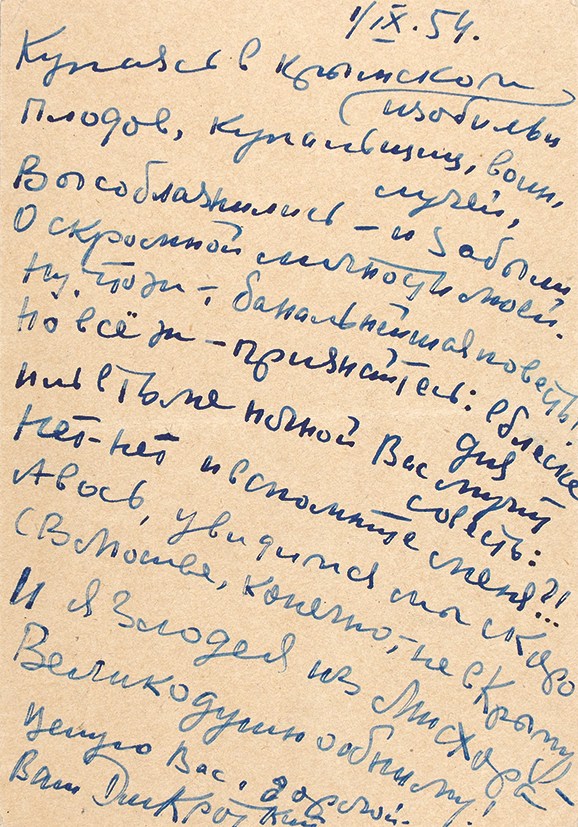 1/IX.54.
Купаясь в крымском
изобильи
Плодов, купальщиц, вин,
лучей,
Вы соблазнились – и забыли
О скромной личности моей.
Ну, что ж, банальнейшая повесть!
Но всё ж – признайтесь: в блеске
дня
иль в тьме ночной Вас мучит
совесть:
Нет-нет и вспомните меня?!
Авось, увидимся мы скоро
(В Москве, конечно, – не в Крыму) –
И я злодея из Мисхора
Великодушно обниму!
Целую Вас, дорогой.
Ваш